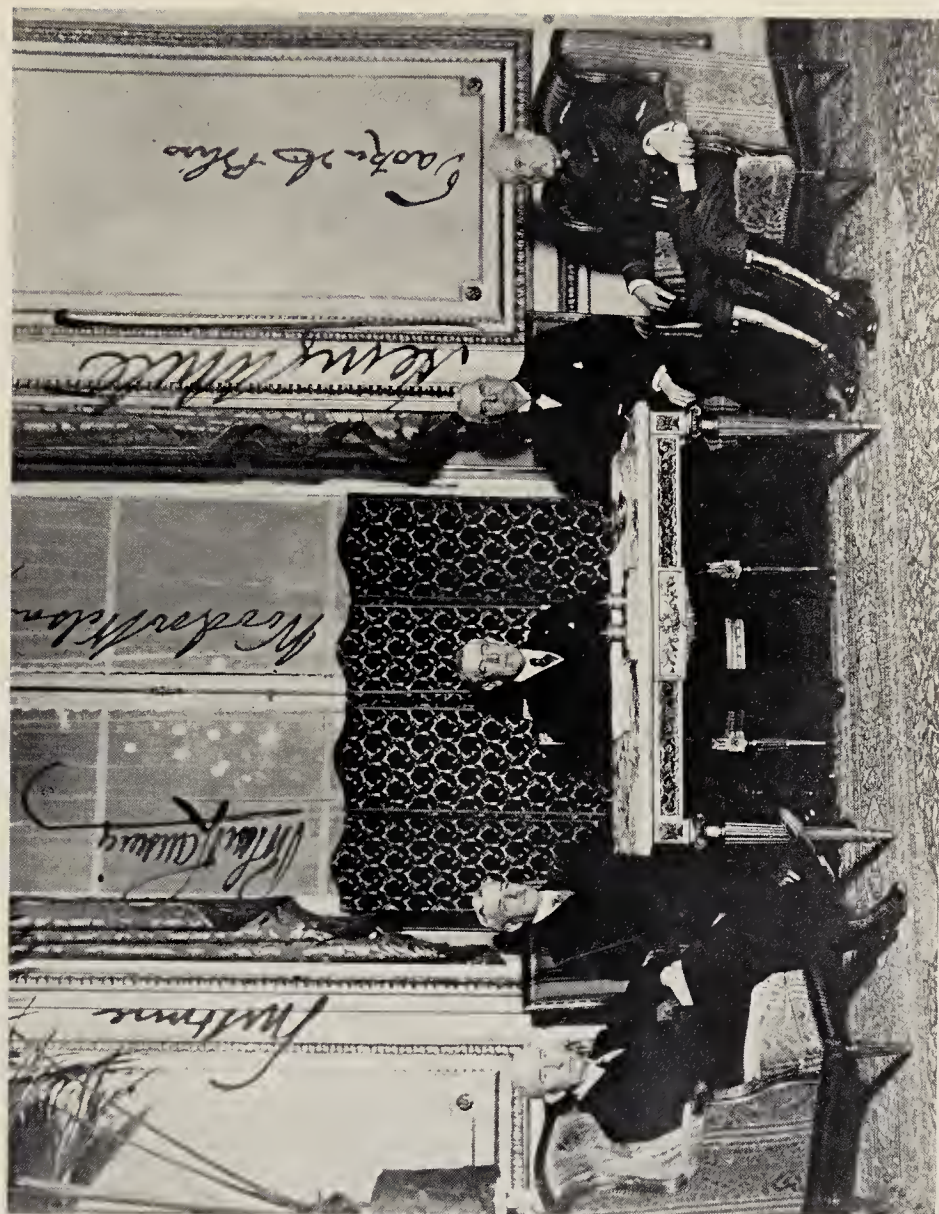 EMHouse
Robert Lansing
Woodrow Wilson
Henry White
Tasker H. Bliss